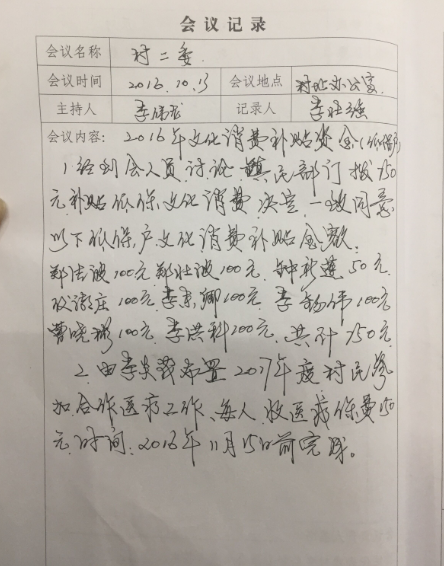 会议记录
会议名称 村二委
会议时间 2016.10.13 会议地点 村址办公室
主持人 李 记录人 李
会议内容: 2016年文化消费补贴资金(低保户)
1.经到会人员讨论 镇民部门拨750
元补贴低保文化消费决定,一致同意
以下低保户文化消费补贴金额
郑 波100元 郑壮波100元 钟 莲50元
庄100元 李 卿100元 李 伟100元
曾晓彬100元 李洪科100元 共计750元
2.由李 布置2017年度村民参
加合作医疗工作、每人收医疗保费150
元时间:2016年11月15日前完成。